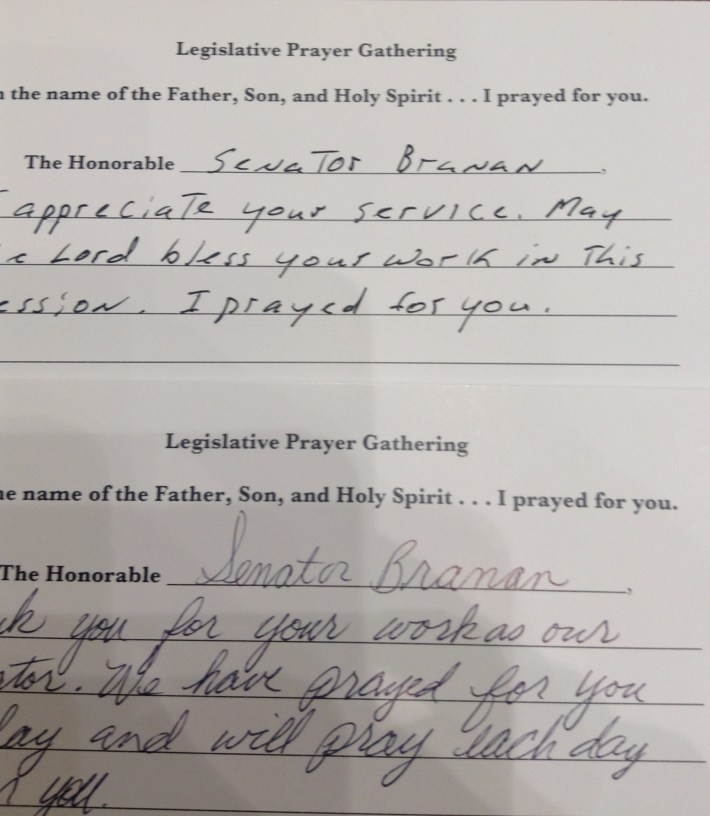 Legislative Prayer Gathering
the name of the Father, Son, and Holy Spirit . . . I prayed for you.
The Honorable Senator Branan,
appreciate your service. May
Lord bless your work in This
ession. I prayed for you.
Legislative Prayer Gathering
e name of the Father, Son, and Holy Spirit . . . I prayed for you.
The Honorable Senator Branan,
k you for your work as our
ator. We have prayed for you
ay and will pray each day
you.